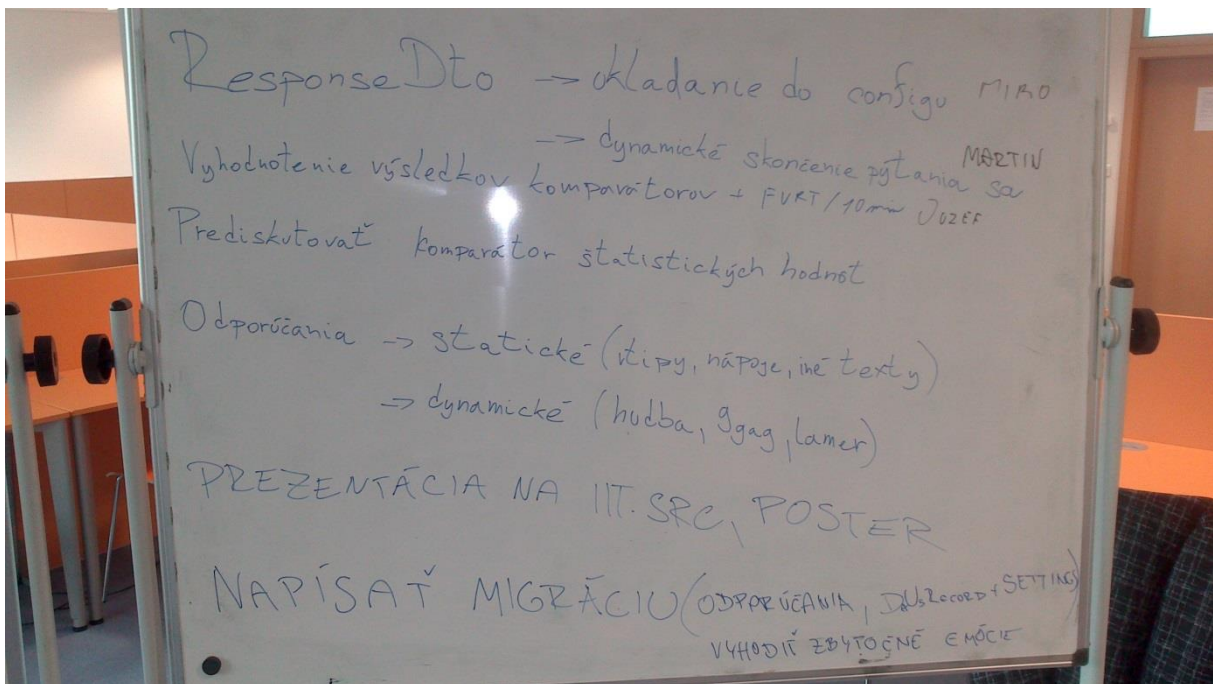 ResponseDto → ukladanie do configu MIRO
→ dynamické skončenie pýtania sa MARTIN
Vyhodnotenie výsledkov komparátorov + FURT/10min JOZEF
Prediskutovať komparátor štatistických hodnôt
Odporúčania → statické (vtipy, nápoje, iné texty)
→ dynamické (hudba, 9gag, lamer)
PREZENTÁCIA NA IIT.SRC, POSTER
NAPÍSAŤ MIGRÁCIU (ODPORÚČANIA, + SETTINGS)
VYHODIŤ ZBYTOČNÉ EMÓCIE